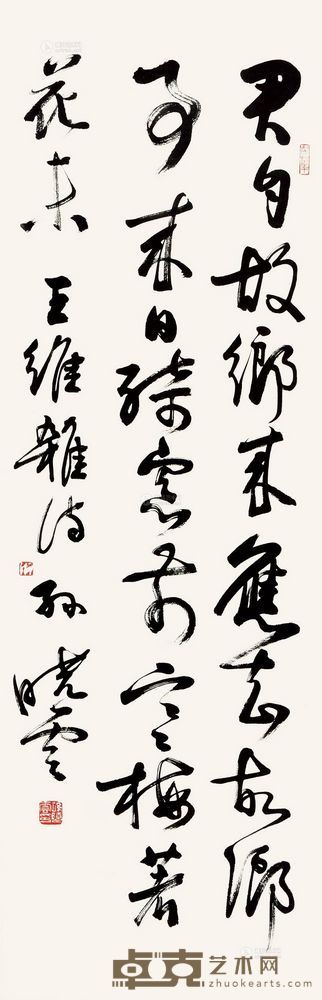 君自故鄉來應知故鄉
事來日綺窗前寒梅著
花未 王維雜詩 孫曉雲
卓克艺术网
zhuokearts.com